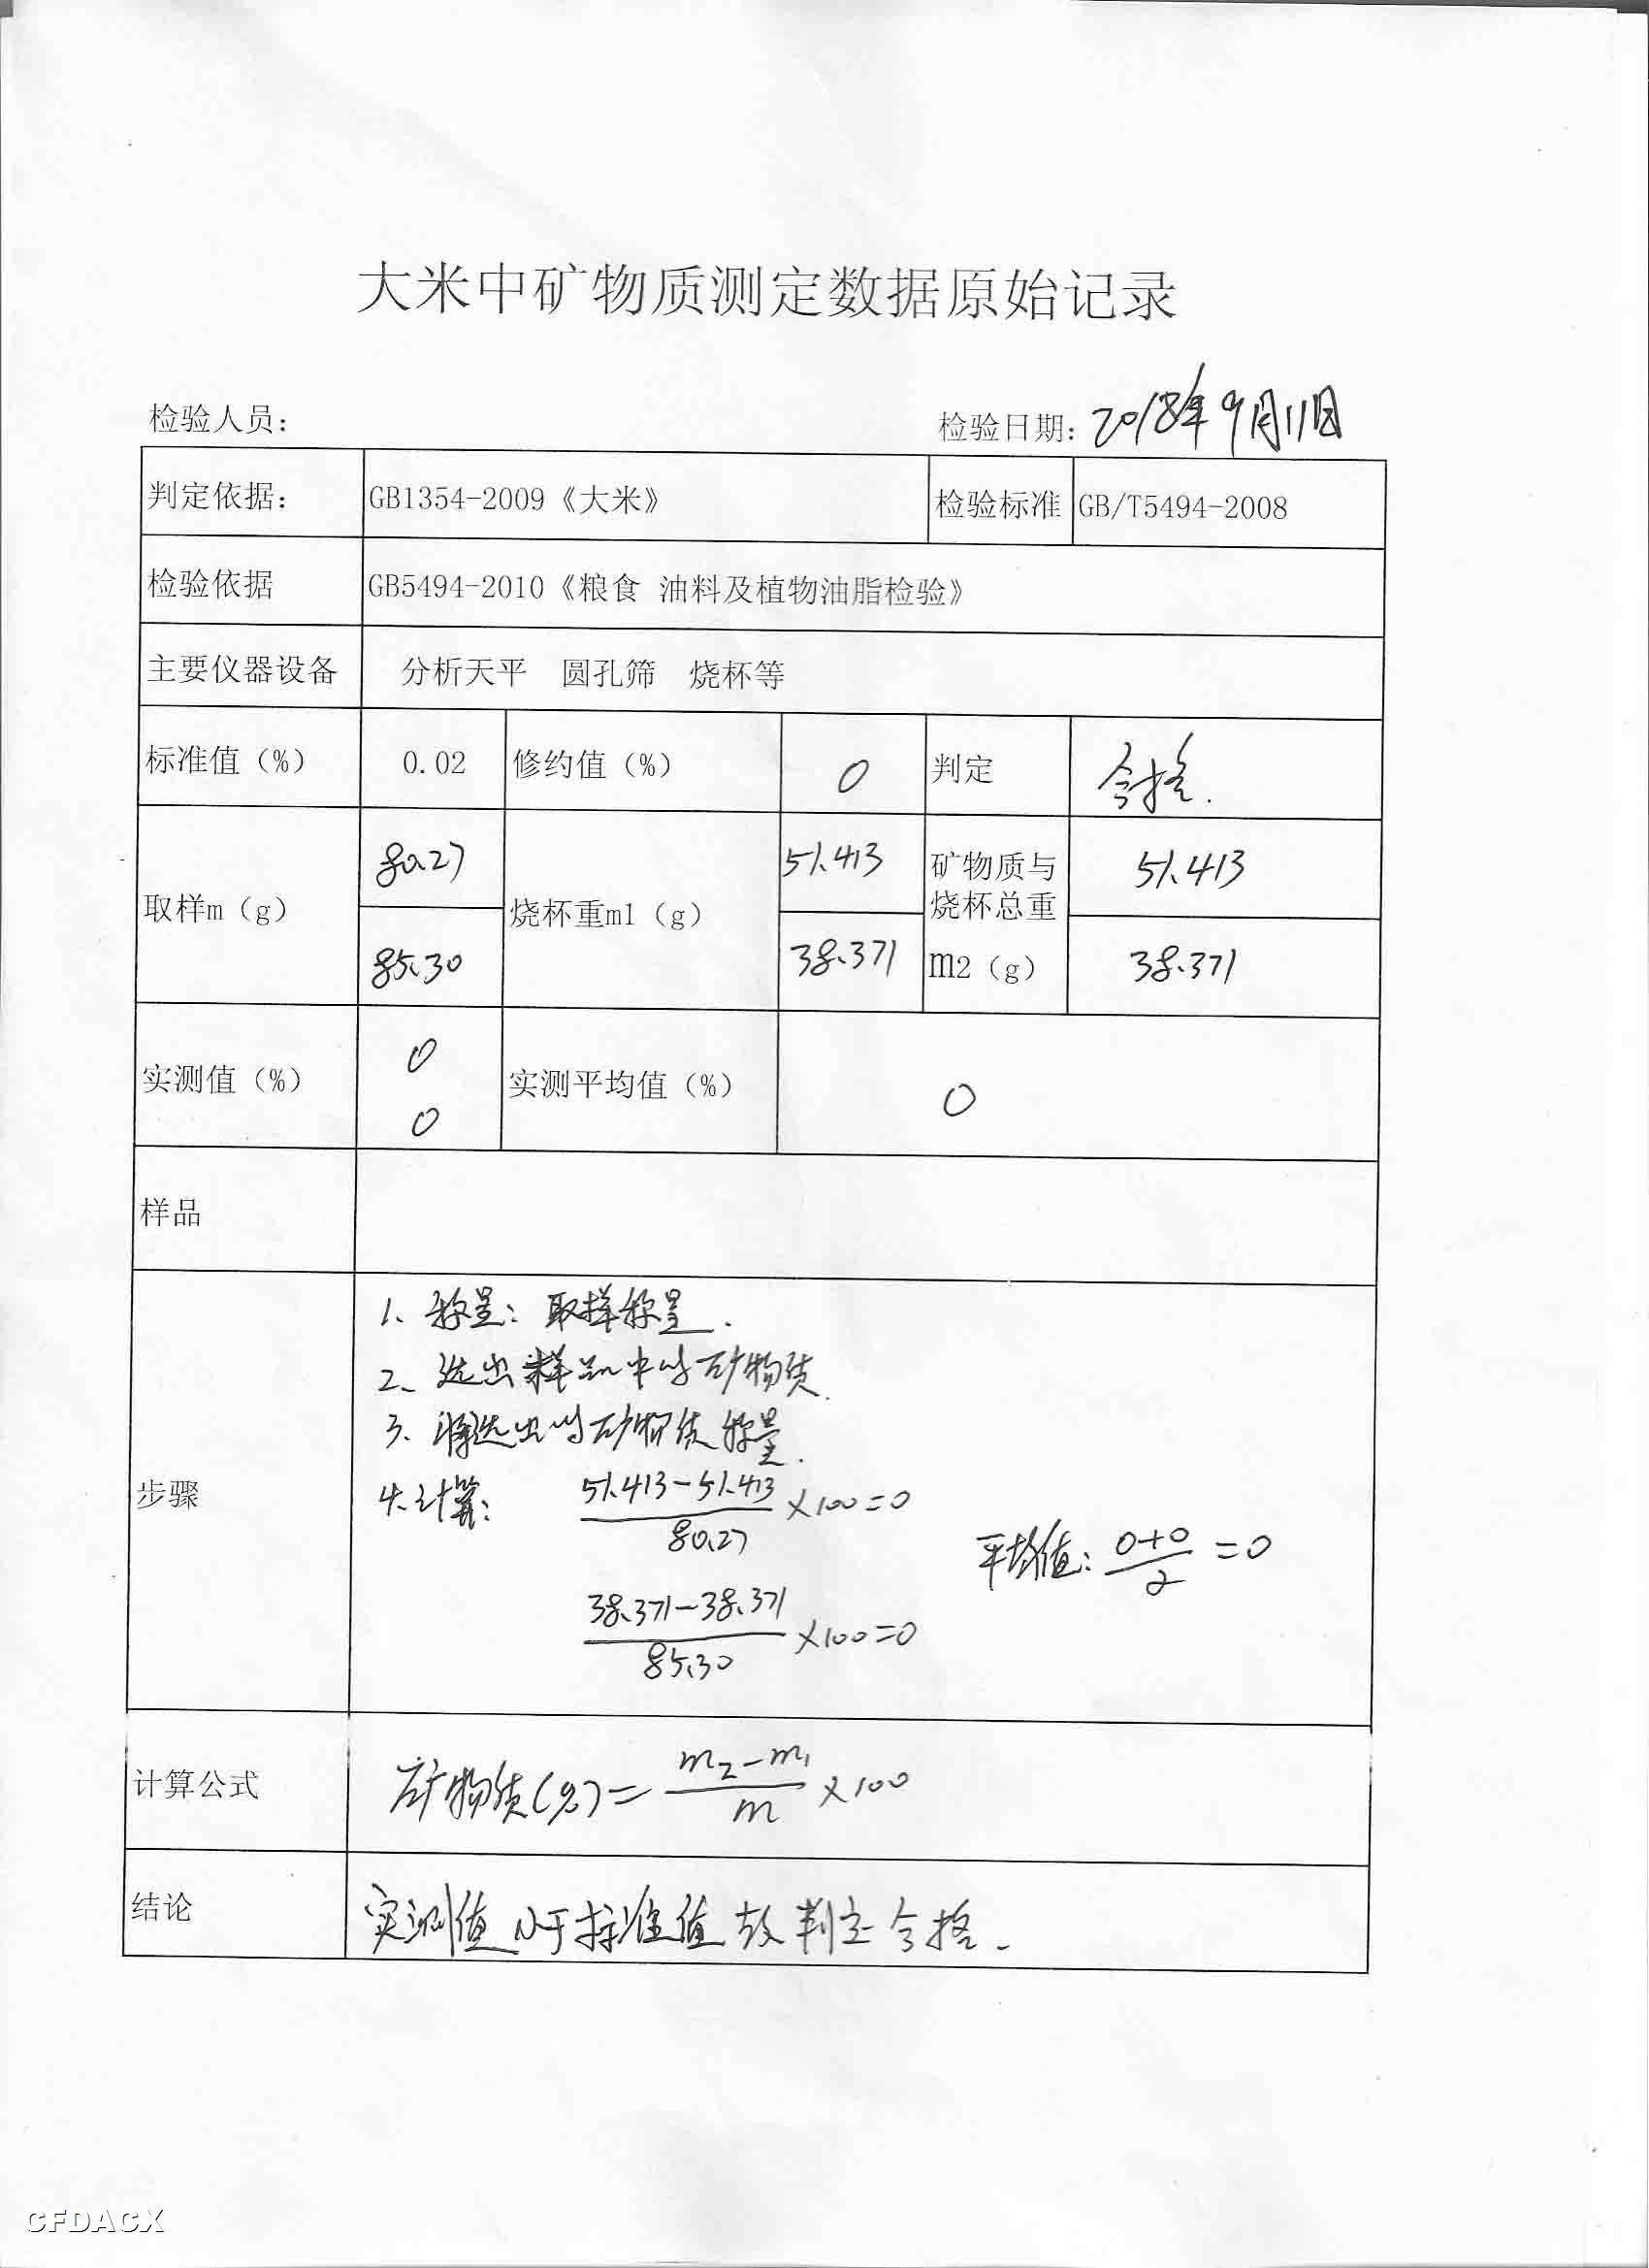 大米中矿物质测定数据原始记录
检验人员： 检验日期：2018年9月11日
判定依据： GB1354-2009《大米》 检验标准 GB/T5494-2008
检验依据 GB5494-2010《粮食 油料及植物油脂检验》
主要仪器设备 分析天平 圆孔筛 烧杯等
标准值（%） 0.02 修约值（%） 0 判定 合格.
取样m（g） 80.27 烧杯重m1（g） 51.413 矿物质与烧杯总重m2（g） 51.413
85.30 38.371 38.371
实测值（%） 0 实测平均值（%） 0
0
样品
步骤
1、称量：取样称量.
2、选出样品中的矿物质.
3、将选出的矿物质称量.
4、计算： (51.413-51.413)/80.27 ×100=0
平均值：(0+0)/2 =0
(38.371-38.371)/85.30 ×100=0
计算公式 矿物质(%)= (m2-m1)/m ×100
结论 实测值小于标准值故判定合格.
CFDACX